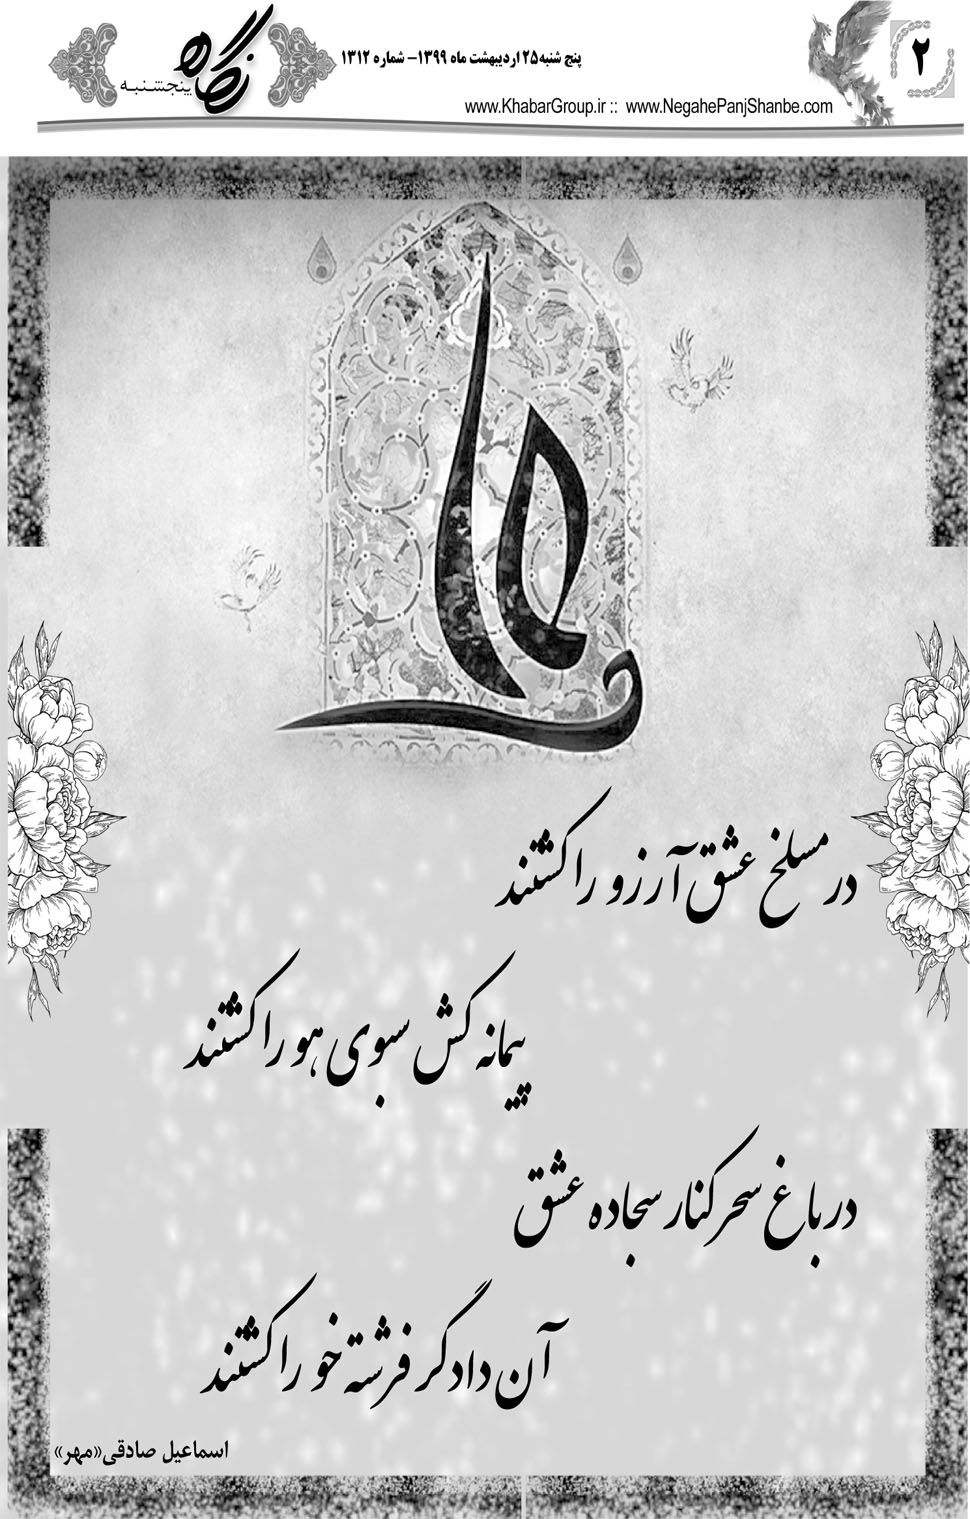 ۲
پنج شنبه۲۵ اردیبهشت ماه ۱۳۹۹- شماره ۱۳۱۲
نگاه
پنجشنبه
www.KhabarGroup.ir :: www.NegahePanjShanbe.com
در مسلخ عشق آرزو را کشتند
پیمانه کش سبوی هو را کشتند
در باغ سحر کنار سجاده عشق
آن دادگر فرشته خو را کشتند
اسماعیل صادقی«مهر»